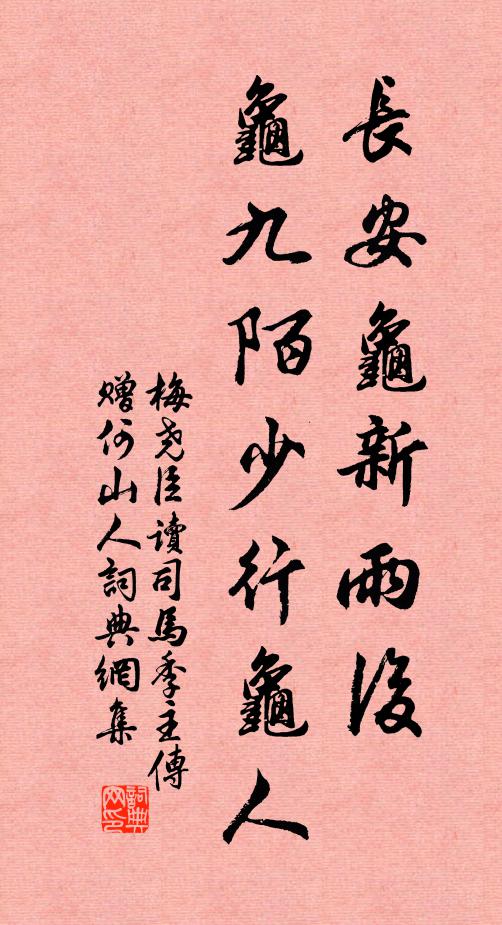 長安龜新雨後
龜九陌少行龜人
梅尧臣讀司馬季主傳
贈何山人詞典網集
詞典
网印